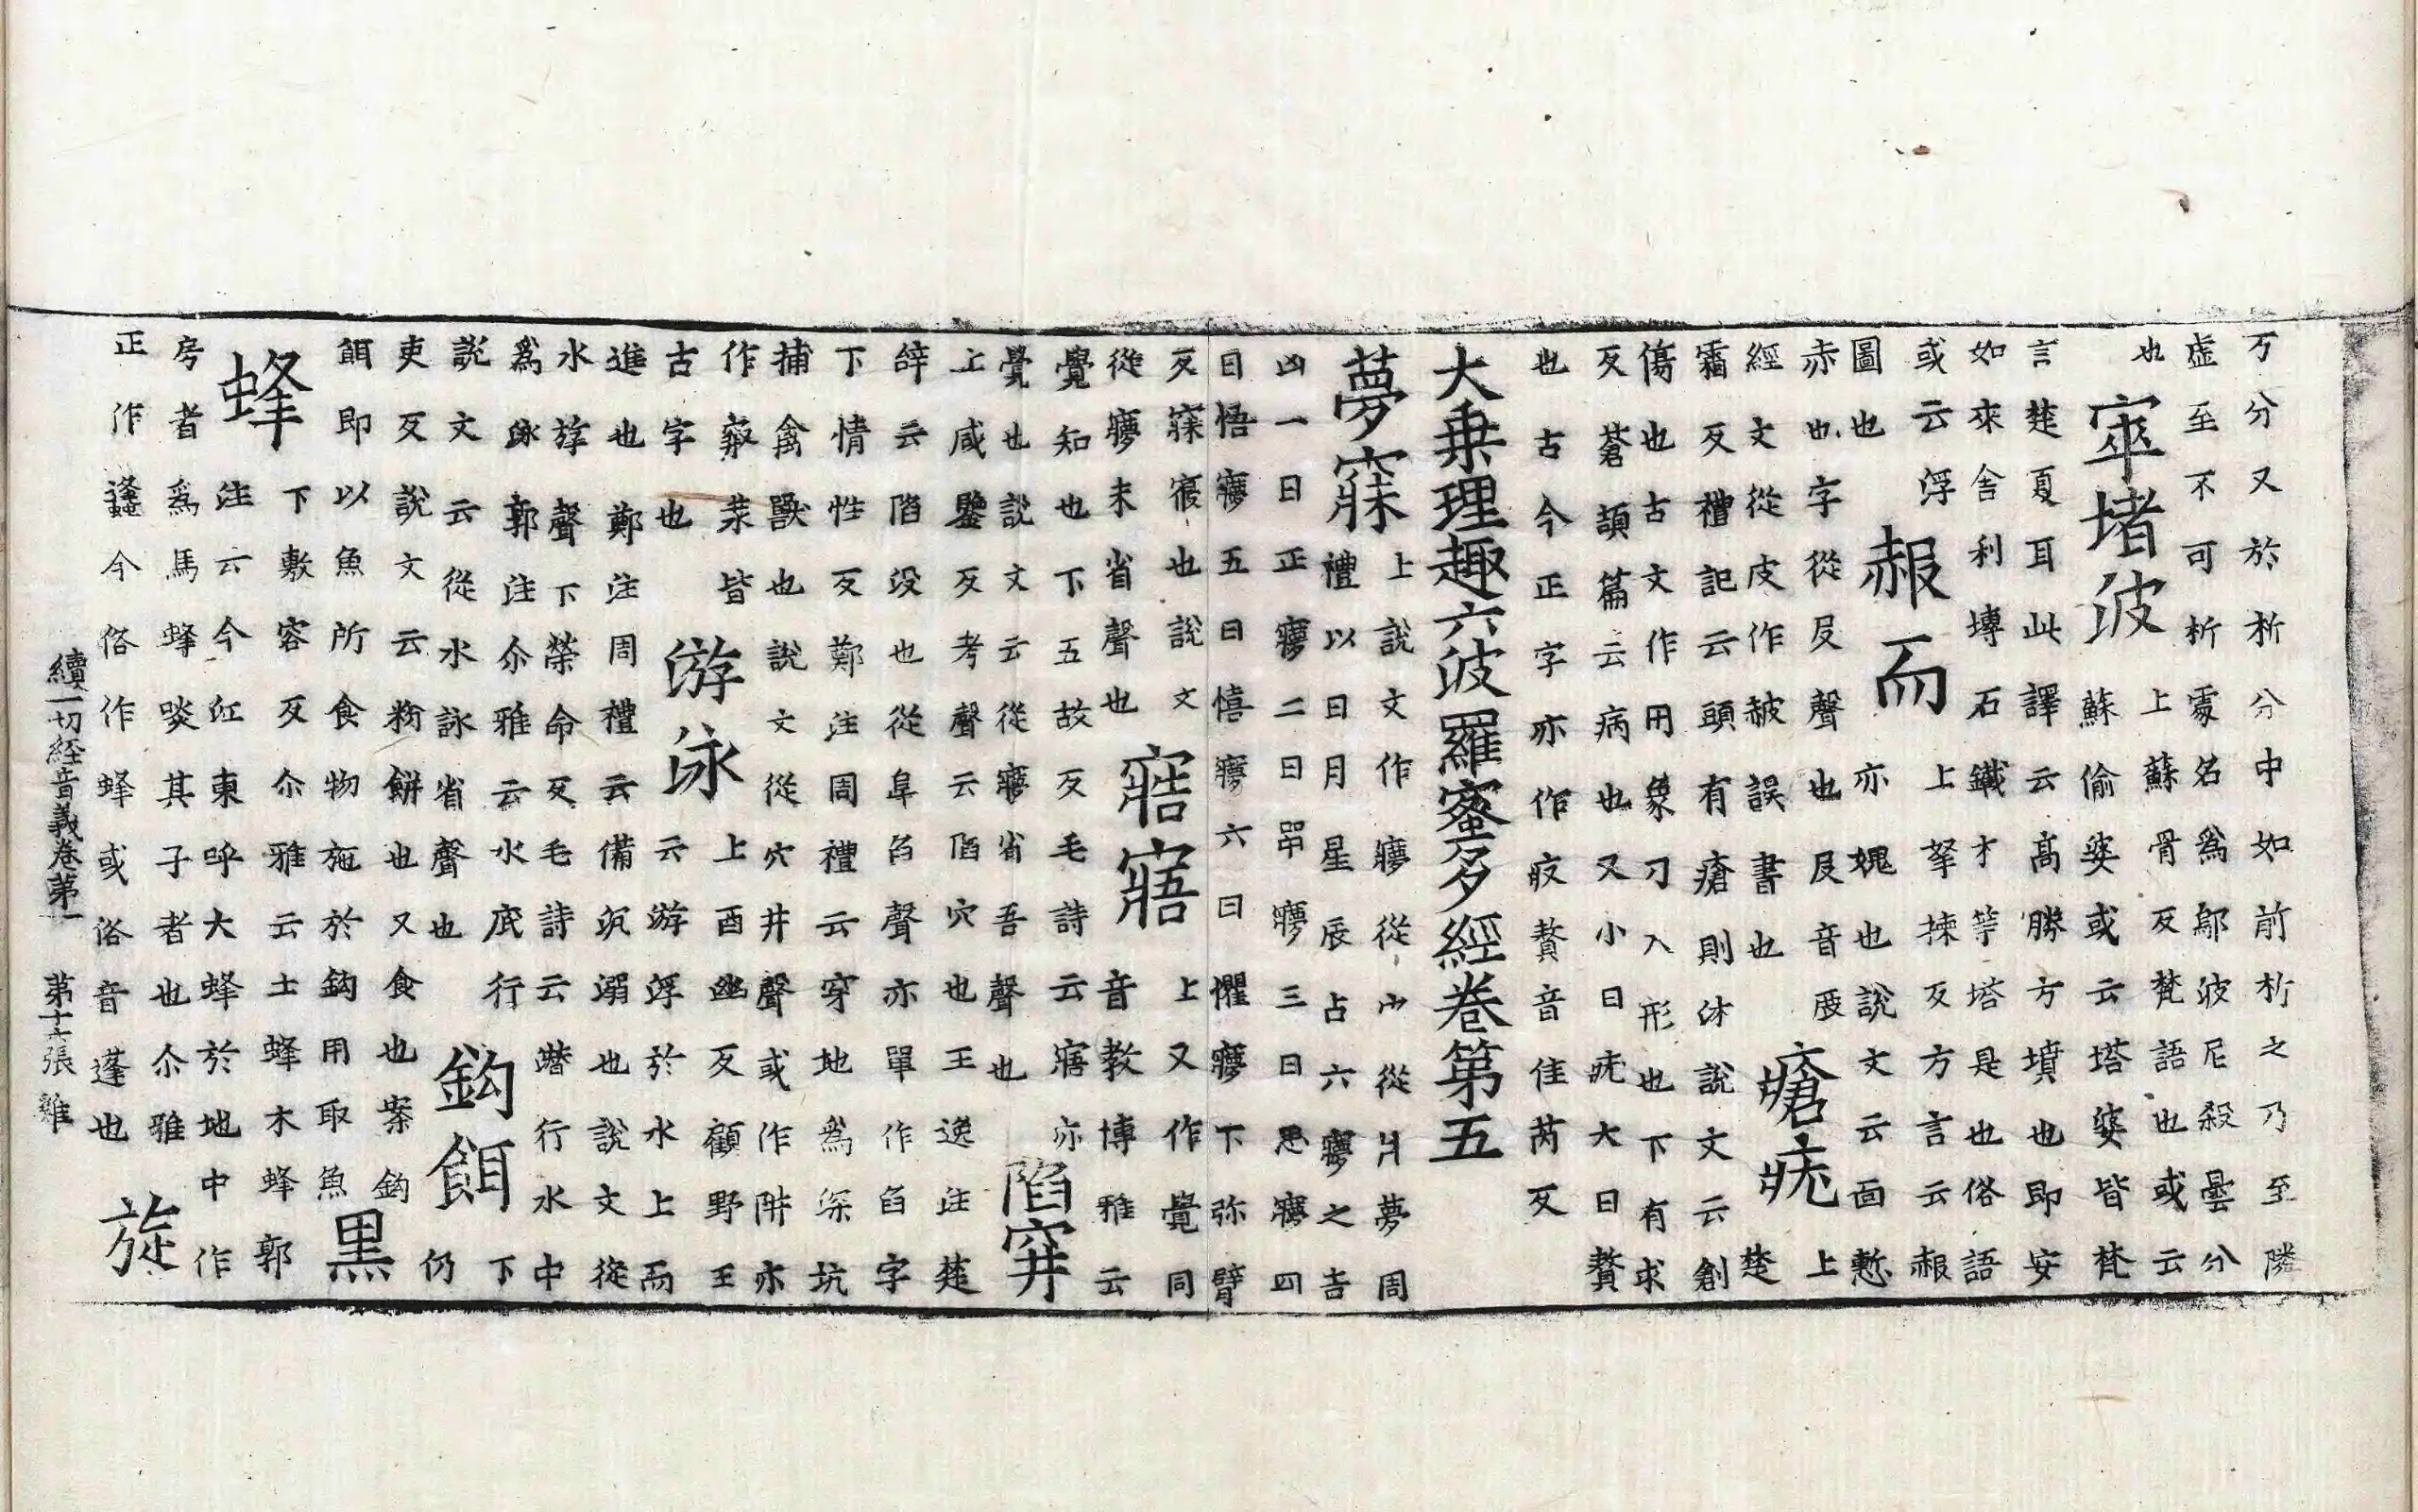 万分又於析分中如前析之乃至隣
虚至不可析處名爲鄔波尼殺曇分
也
窣堵波
上蘇骨反梵語也或云
蘇偷婆或云塔婆皆梵
言楚夏耳此譯云髙勝方墳也即安
如來舍利塼石鐵才等塔是也俗語
或云浮
圖也
赧而
上拏揀反方言云赧
亦媿也説文云面慙
赤也字從𠬝聲也𠬝音
經文從皮作誤書也
瘡疣
上
楚
霜反禮記云頭有瘡則沐説文云創
傷也古文作用象刀入形也下有求
反蒼頡篇云病也又小曰疣大曰贅
也古今正字亦作贅音佳芮反
大乗理趣六波羅蜜多經卷第五
夢寐
上説文作㝱從宀從爿夢周
禮以日月星辰占六㝱之吉
凶一曰正㝱二曰㗁㝱三曰思㝱四
曰悟㝱五曰憘㝱六曰懼㝱下弥臂
反寐寢也説文
從㝱未省聲也
寤
上又作覺同
音教博雅云
覺知也下五故反毛詩云寤亦
覺也説文云從㝱省吾聲也
陷穽
上咸鑒反考聲云陷穴也王逸注楚
辝云陷没也從阜臽聲亦單作臽字
下情性反鄭注周禮云穿地爲深坑
捕禽獸也説文從穴井聲或作阱亦
作汬皆
古字也
游泳
上酉幽反顧野王
云游浮於水上而
進也鄭注周禮云備沉溺也説文從
水斿聲下榮命反毛詩云潛行水中
爲泳郭注尒雅云水底行
説文云從水詠省聲也
鈎餌
下
仍
吏反説文云粉餅也又食也案鈎
餌即以魚所食物施於鈎用取魚
黒
蜂
下敷容反尒雅云土蜂木蜂郭
注云今江東呼大蜂於地中作
房者爲馬蜂啖其子者也尒雅
正作蠭今俗作蜂或俗音蓬也
旋
續一切經音義卷第一 第十六張 雞